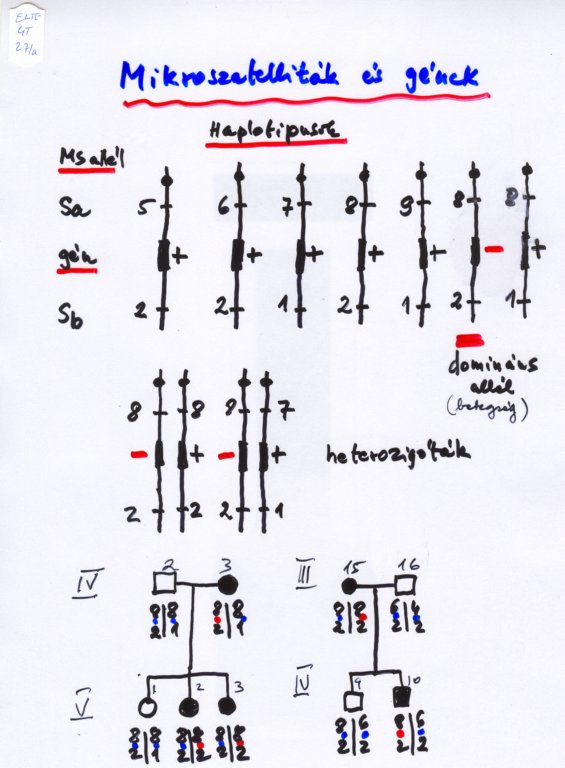 ELTE
GT
27/a
Mikroszatelliták és gének
Haplotípusok
Ms allél
Sa 5 6 7 8 9 8 8
gén + + + + + - +
Sb 2 2 1 2 1 2 1
domináns
allél
(betegség)
8 8 8 7
- + - +
2 2 2 1
heterozigóták
IV 2 3
8|8 8|8
2|1 2|1
V 1 2 3
8|8 8|8 8|8
2|1 2|2 2|2
III 15 16
8|8 6|4
2|2 2|2
IV 9 10
8|6 8|6
2|2 2|2